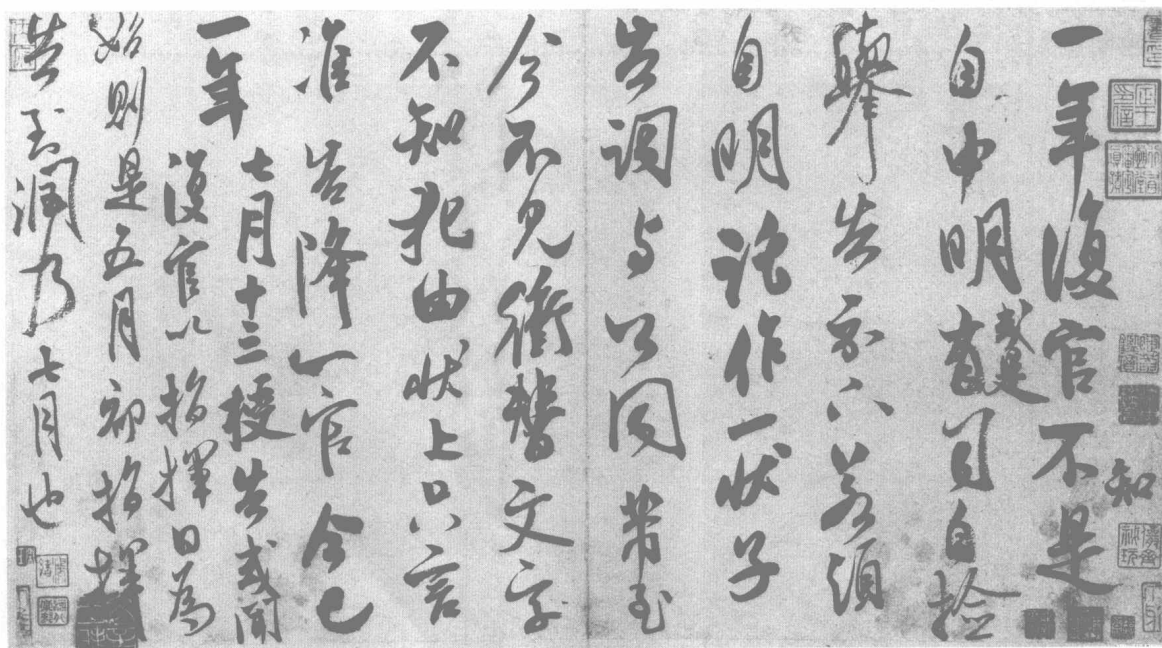 一年復官不知是
自申明有司自檢
舉告示下若須
自明託作一狀子
告詞与公同
今不見衝替文字
不知犯由狀上只言
准告降一官今已
一年
七月十三授告或聞
復官以指揮日為
始則是五月初指揮
告至潤乃七月也